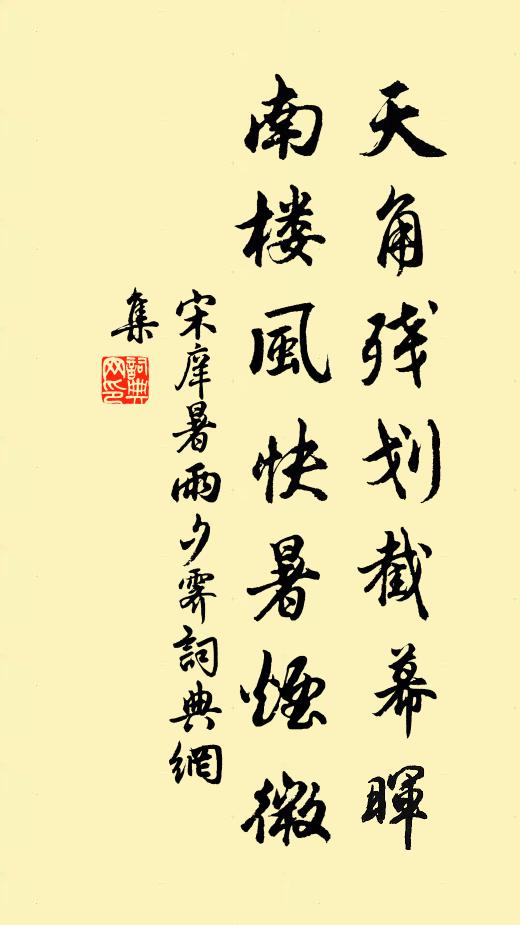 天角残划截幕暉
南楼風快暑煙微
宋庠暑雨夕霽詞典網
集
詞典網印